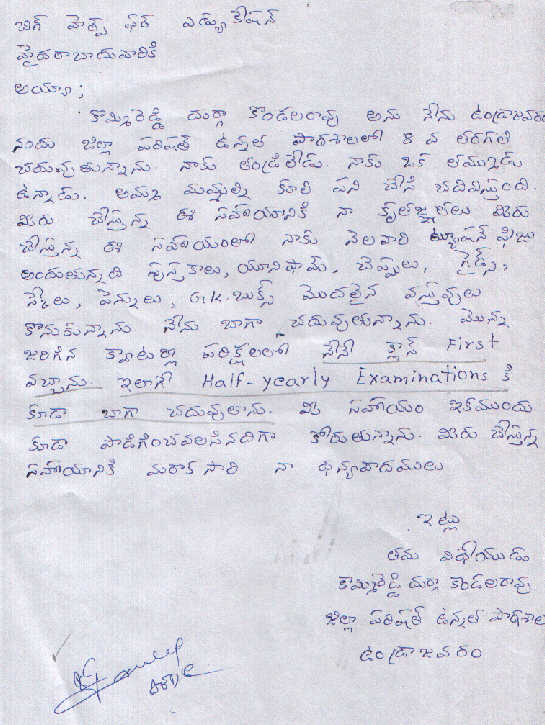 బిగ్ హెల్ప్ ఫర్ ఎడ్యుకేషన్
హైదరాబాదువారికి
అయ్యా;
కొమ్మిరెడ్డి దుర్గా కొండలరావు అను నేను ఉండ్రాజవరం
నందు జిల్లా పరిషత్ ఉన్నత పాఠశాలలో 8 వ తరగతి
చదువుతున్నాను. నాకు తండ్రిలేడు. నాకు ఒక తమ్ముడు
ఉన్నాడు. అమ్మ మమ్మల్ని కూలి పని చేసి చదివిస్తుంది.
మీరు చేస్తున్న ఈ సహాయానికి నా కృతజ్ఞతలు మీరు
చేస్తున్న ఈ సహాయంలో నాకు నెలవారి ట్యూషన్ ఫీజు
అందుతున్నది పుస్తకాలు, యూనిఫామ్, చెప్పులు, గైడ్స్,
స్కేలు, పెన్నులు, G.K. బుక్స్ మొదలైన వస్తువులు
కొనుకున్నాను నేను బాగా చదువుతున్నాను. మొన్న
జరిగిన క్వాటర్లీ పరిక్షలలో నేనే క్లాస్ First
వచ్చాను. ఇలాగే Half-yearly Examinations కి
కూడా బాగా చదువుతాను. మీ సహాయం ఇకముందు
కూడా పొడిగించవలసినదిగా కోరుతున్నాను. మీరు చేస్తున్న
సహాయానికి మరొక్కసారి నా ధన్యవాదములు
ఇట్లు
తమ విధేయుడు
కొమ్మిరెడ్డి దుర్గా కొండలరావు
జిల్లా పరిషత్ ఉన్నత పాఠశాల
ఉండ్రాజవరం